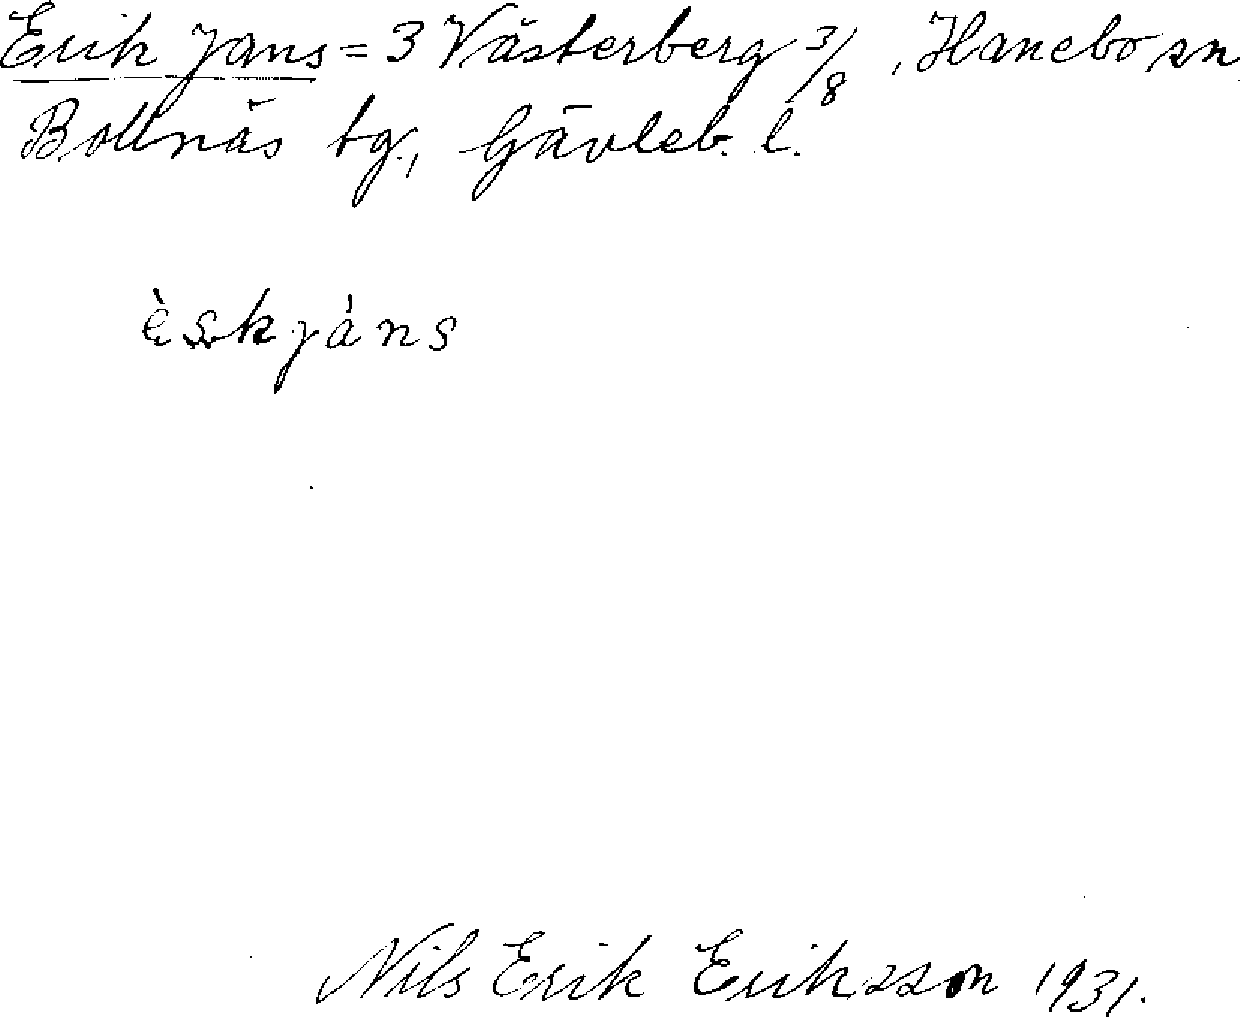 Erik Jans = 3 Västerberg 3/8, Hanebo sn
Bollnäs tg., Gävleb. l.
èskjáns
Nils Erik Eriksson 1931.